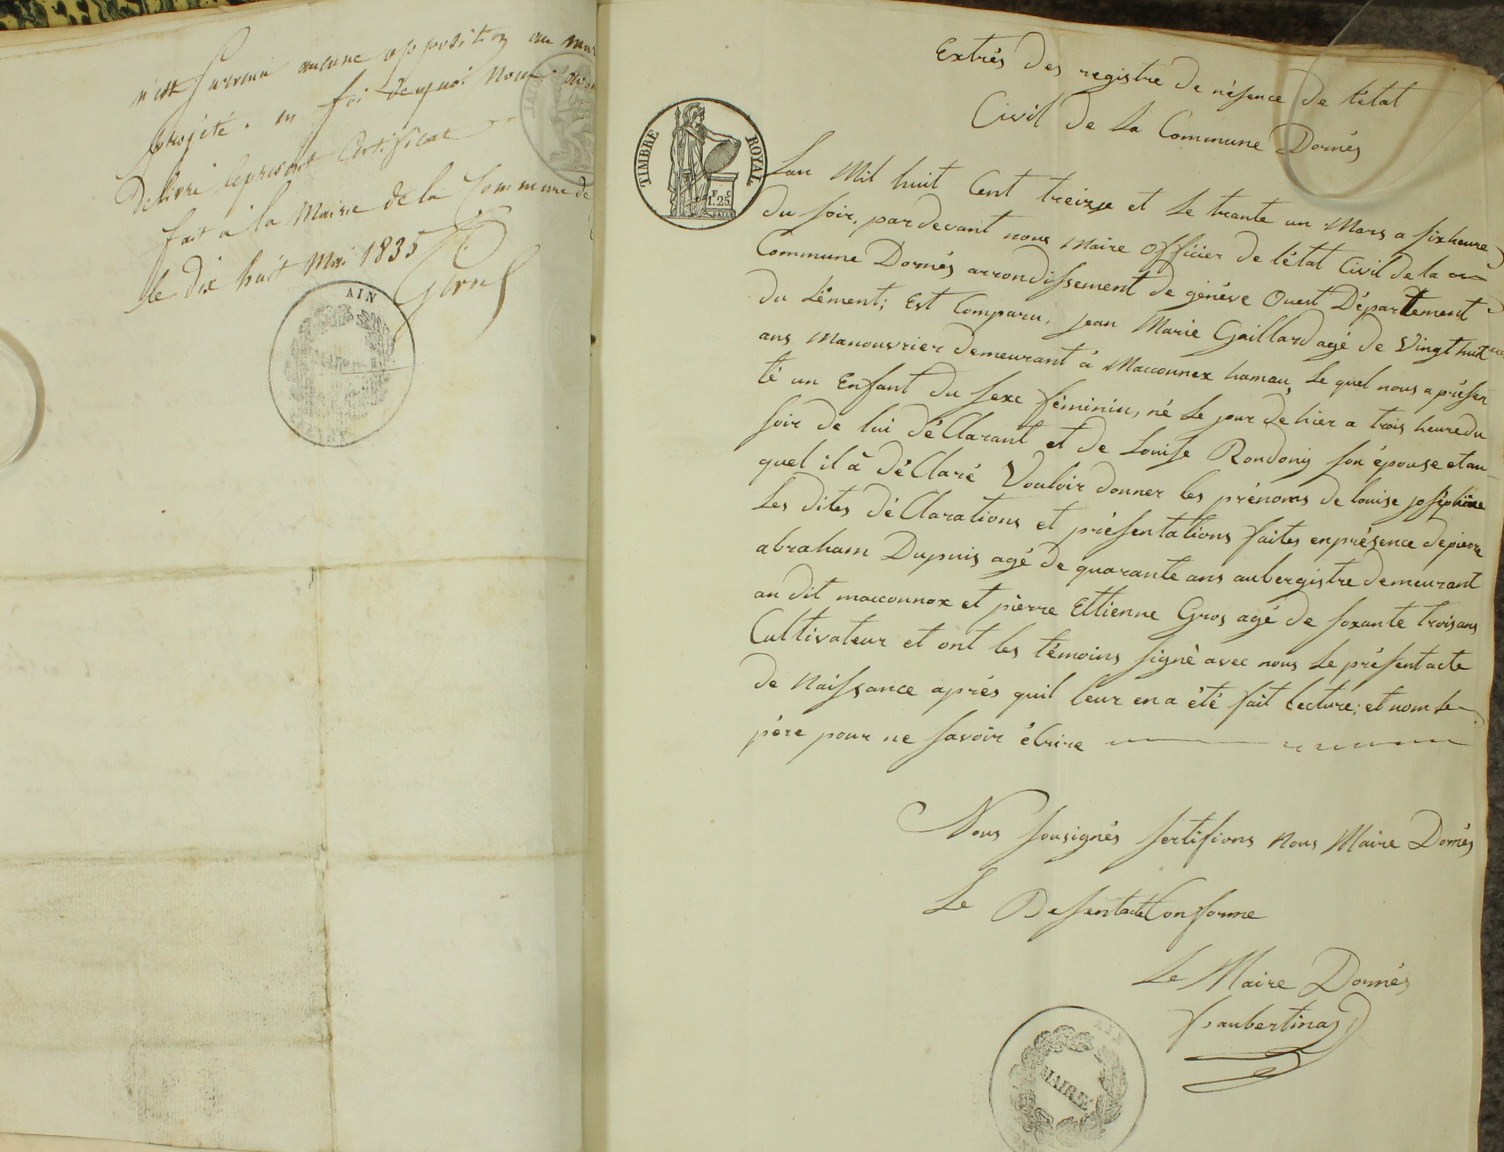 n'est survenu aucune opposition au
projèté. en foi dequoi nous
Delivré leprésent Certificat
fait à la Mairie de la Commune de
le dix huit Mai 1835
AIN
TIMBRE ROYAL
F. C.
1.25
Extrés des registre de nésence de l'état
Civil de La Commune Dornés
Lan Mil huit Cent treizje et Le trante un Mars a sixheure
du soir, pardevant nous Maire Officier de l'état Civil de la
Commune Dornés arrondissement de généve Ouest Département
du Lément; Est Comparu, jean Marie Gaillard agé de Vingt huit
ans Manouvrier demeurant á Macconnex hameau, Le quel nous a présen
té un Enfant du sexe féminin, né Le jour de hier a trois heure du
soir de lui déClarant et de Louise Rondony son épouse et au
quel il à déClaré Vouloir donner les prénoms de louise joséphine
Les dites déClarations et présentations faites enprésence depierre
abraham Dupuis agé de quarante ans aubergistre demeurant
au dit macconnex et pierre Ettienne Gros agé de soxante troisans
Cultivateur et ont les témoins signé avec nous Le présentacte
de Naissance aprés quil leur en a été fait lecture; et nom le
pére pour ne savoir éCrire
Nous sousignés sertifions nous Maire Dornés
Le Desentacte Conforme
Le Maire Dornés
faubertinas
AIN
MAIRIE